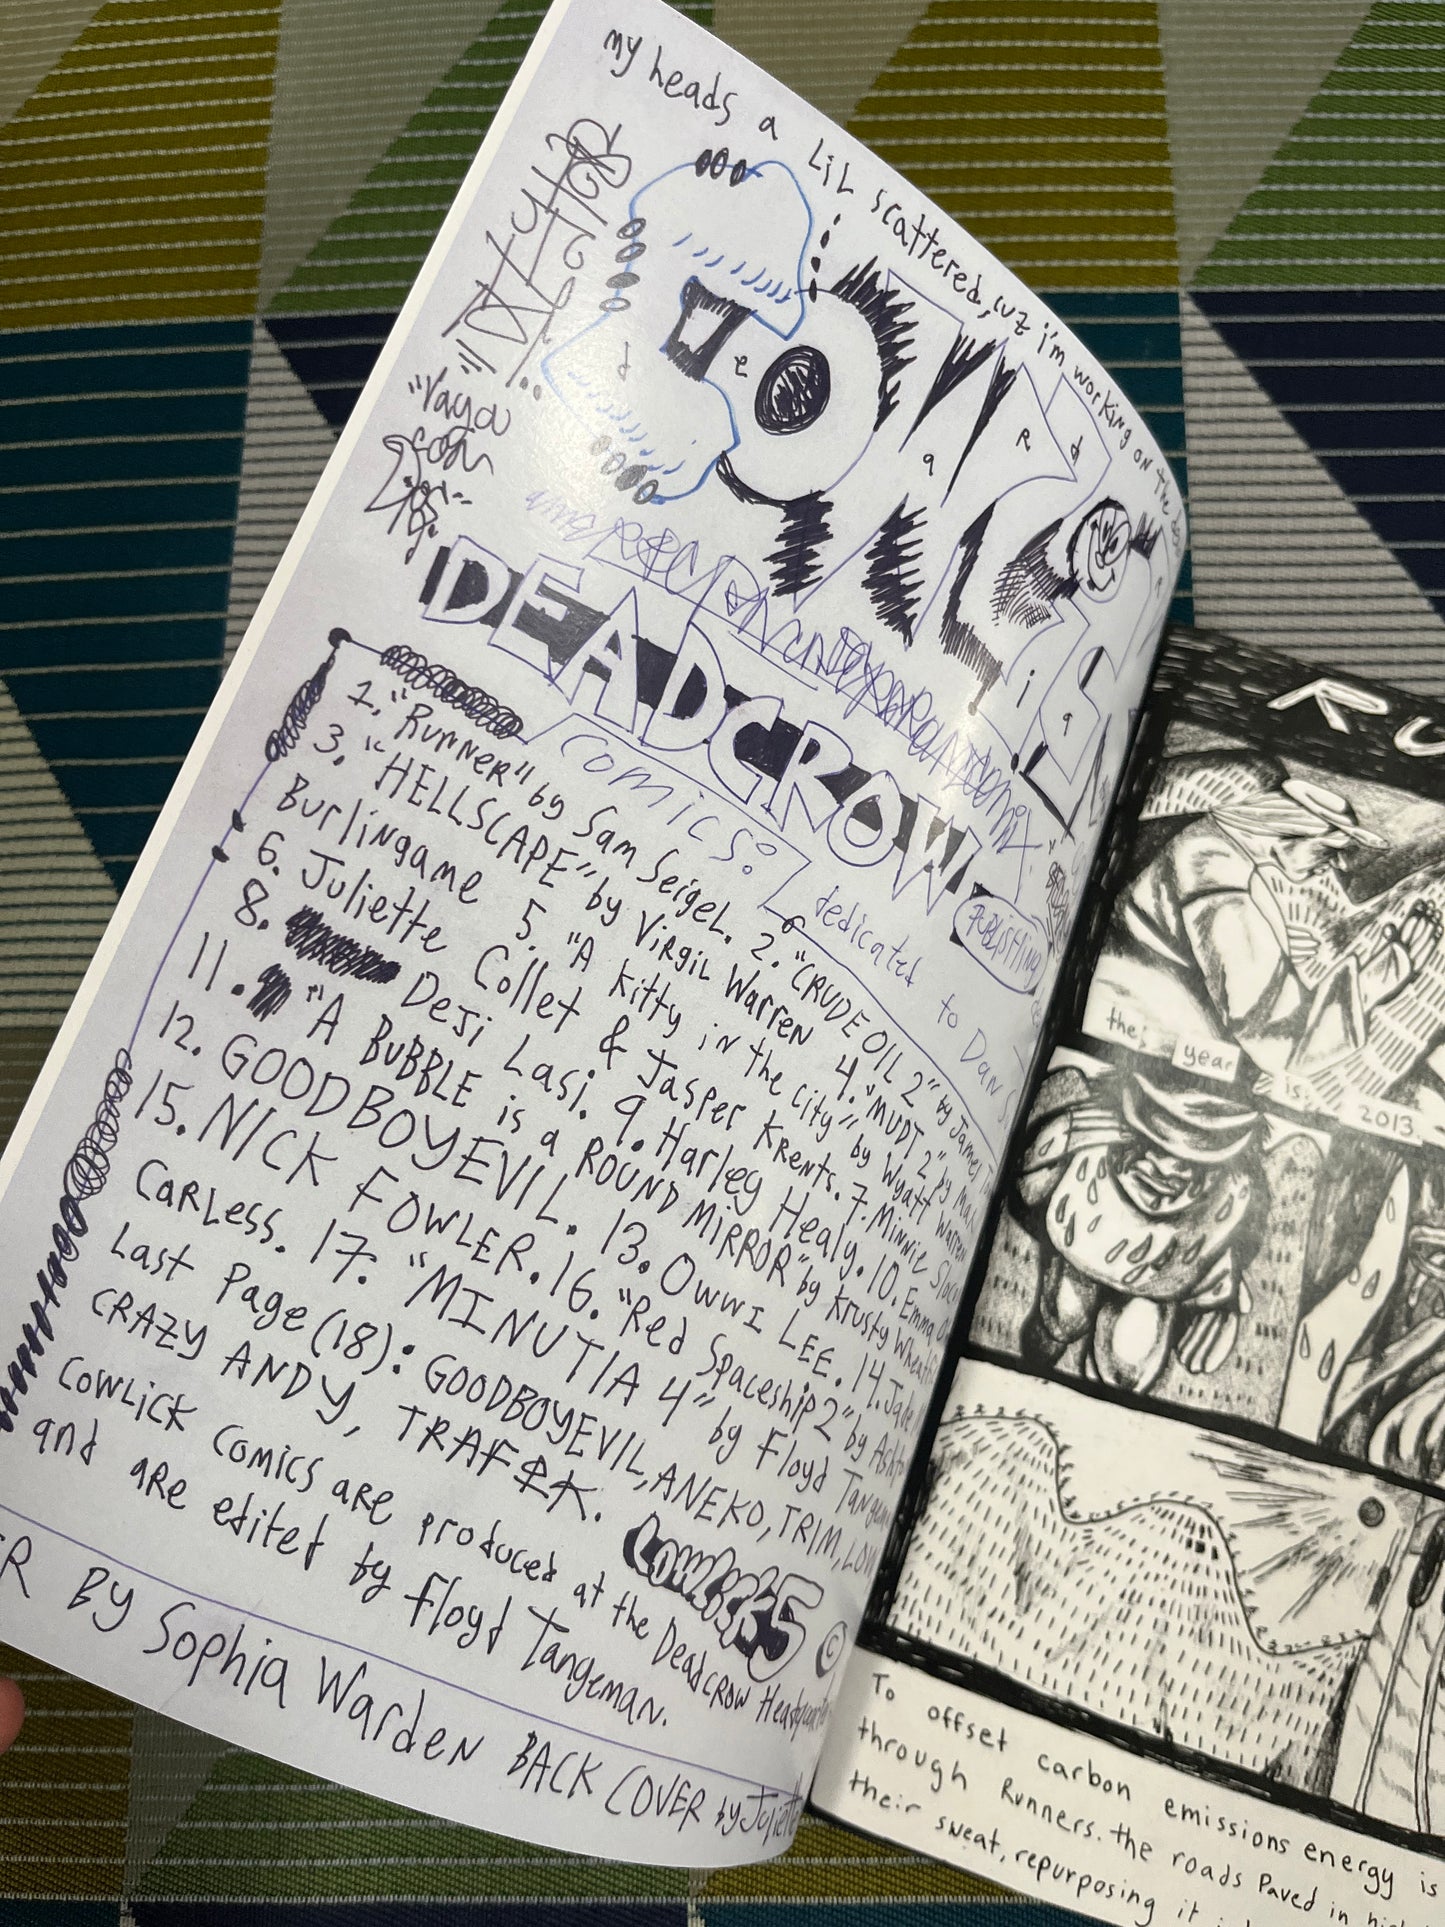 my heads a LiL scattered, cuz i'm working on the
DEADCROW
PUBLISHING
comics:
dedicated to Dan
1. "Runner" by Sam Seigel. 2. "CRUDE OIL 2" by James
3. "HELLSCAPE" by Virgil Warren 4. "MUDT 2" by
Burlingame 5. "A Kitty in the city" by Wyatt Warren
6. Juliette Collet & Jasper Krents. 7. Minnie
8. Deji Lasi. 9. Harley Healy. 10. Emma
11. "A BUBBLE is a ROUND MIRROR" by Krusty
12. GOODBOYEVIL. 13. OWWI LEE. 14. Jade
15. NICK FOWLER. 16. "Red Spaceship 2" by
Carless. 17. "MINUTIA 4" by Floyd
Last Page (18): GOODBOYEVIL, ANEKO, TRIM,
CRAZY ANDY,
COWLICK Comics are produced at the Deadcrow
and are edited by Floyd Tangeman.
©
BY Sophia Warden BACK COVER by Juliette
RU
the year is 2013
To offset carbon emissions energy is
through Runners. the roads Paved in
their sweat, repurposing it